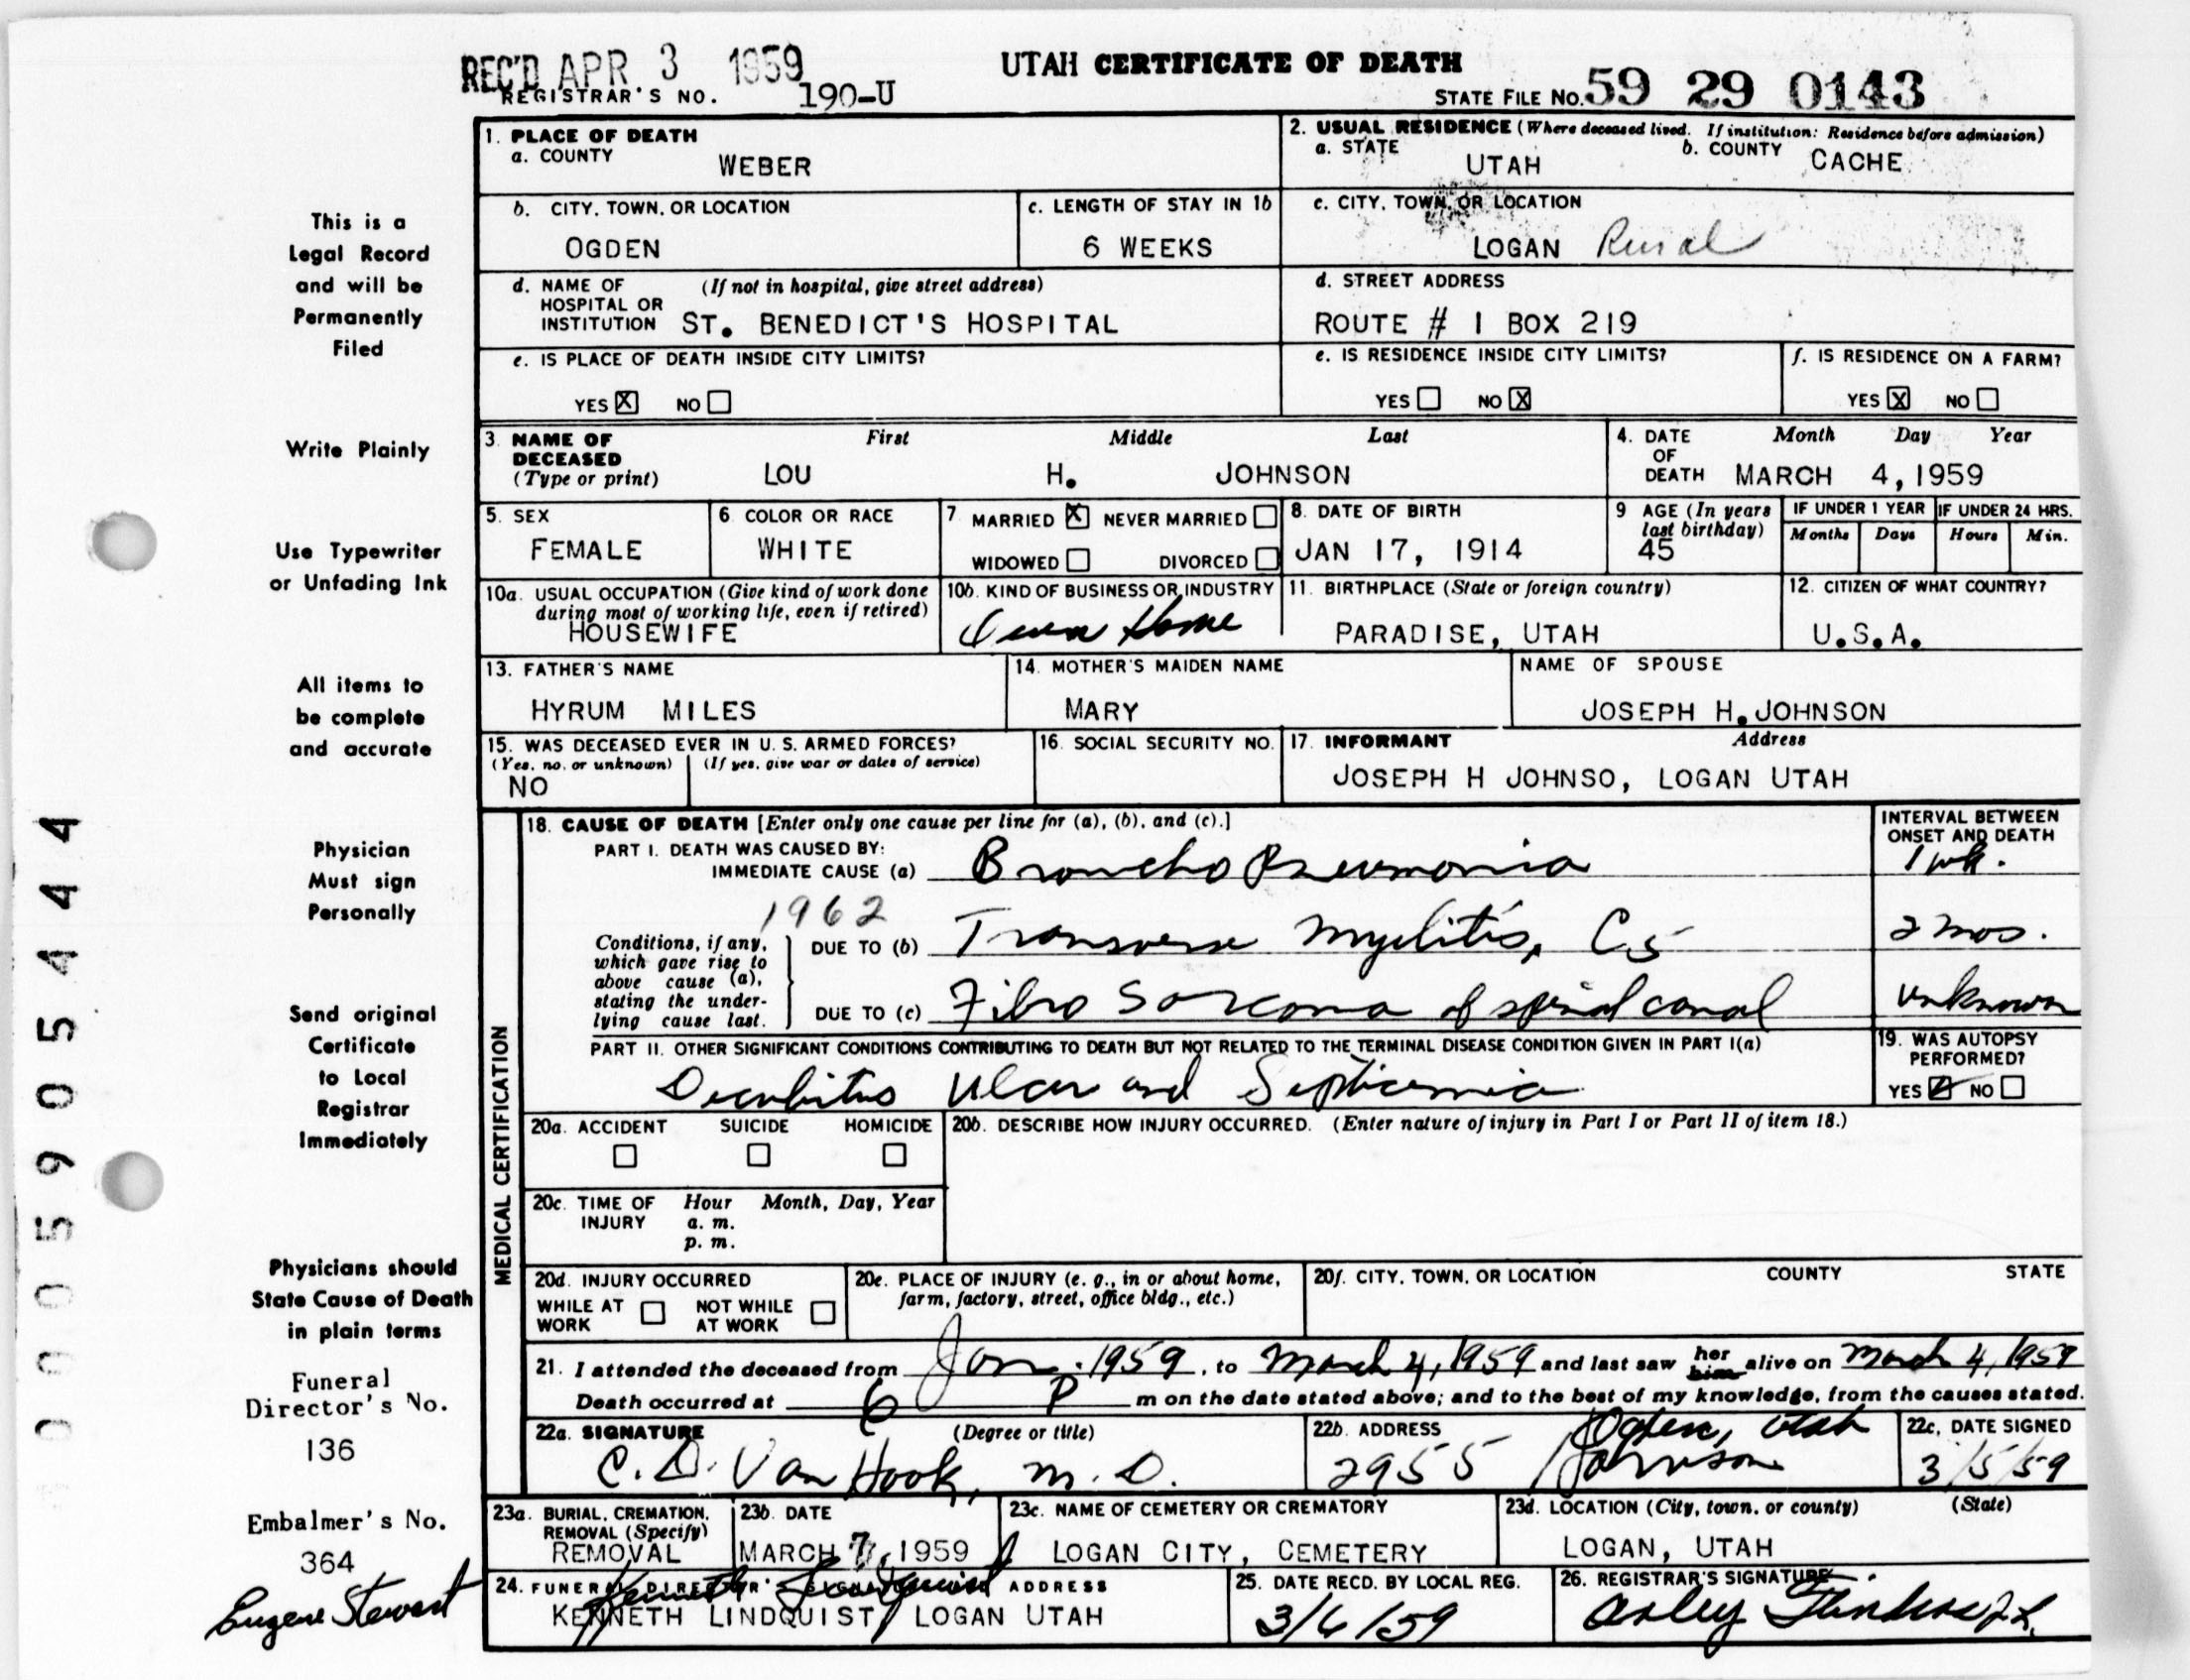 REC'D APR 3 1959
UTAH CERTIFICATE OF DEATH
REGISTRAR'S NO. 190-U
STATE FILE No. 59 29 0143
1. PLACE OF DEATH
a. COUNTY WEBER
2. USUAL RESIDENCE (Where deceased lived. If institution: Residence before admission)
a. STATE UTAH b. COUNTY CACHE
b. CITY, TOWN, OR LOCATION OGDEN
c. LENGTH OF STAY IN 1b 6 WEEKS
c. CITY, TOWN, OR LOCATION LOGAN Rural
d. NAME OF HOSPITAL OR INSTITUTION (If not in hospital, give street address) ST. BENEDICT'S HOSPITAL
d. STREET ADDRESS ROUTE # 1 BOX 219
e. IS PLACE OF DEATH INSIDE CITY LIMITS?
YES X NO
e. IS RESIDENCE INSIDE CITY LIMITS?
YES NO X
f. IS RESIDENCE ON A FARM?
YES X NO
3. NAME OF DECEASED (Type or print)
First Middle Last
LOU H. JOHNSON
4. DATE OF DEATH Month Day Year
MARCH 4, 1959
5. SEX FEMALE
6. COLOR OR RACE WHITE
7. MARRIED X NEVER MARRIED
WIDOWED DIVORCED
8. DATE OF BIRTH JAN 17, 1914
9 AGE (In years last birthday) 45
IF UNDER 1 YEAR Months Days
IF UNDER 24 HRS. Hours Min.
10a. USUAL OCCUPATION (Give kind of work done during most of working life, even if retired)
HOUSEWIFE
10b. KIND OF BUSINESS OR INDUSTRY
Own Home
11. BIRTHPLACE (State or foreign country)
PARADISE, UTAH
12. CITIZEN OF WHAT COUNTRY?
U.S.A.
13. FATHER'S NAME
HYRUM MILES
14. MOTHER'S MAIDEN NAME
MARY
NAME OF SPOUSE
JOSEPH H. JOHNSON
15. WAS DECEASED EVER IN U. S. ARMED FORCES?
(Yes, no, or unknown) (If yes, give war or dates of service)
NO
16. SOCIAL SECURITY NO.
17. INFORMANT Address
JOSEPH H JOHNSO, LOGAN UTAH
MEDICAL CERTIFICATION
18. CAUSE OF DEATH [Enter only one cause per line for (a), (b), and (c).]
INTERVAL BETWEEN ONSET AND DEATH
PART I. DEATH WAS CAUSED BY:
IMMEDIATE CAUSE (a) Broncho Pneumonia 1 wk.
1962
Conditions, if any, which gave rise to above cause (a), stating the underlying cause last.
DUE TO (b) Transverse Myelitis, C5 2 mos.
DUE TO (c) Fibro Sarcoma of spinal canal unknown
PART II. OTHER SIGNIFICANT CONDITIONS CONTRIBUTING TO DEATH BUT NOT RELATED TO THE TERMINAL DISEASE CONDITION GIVEN IN PART I(a)
Decubitus Ulcer and Septicemia
19. WAS AUTOPSY PERFORMED?
YES NO
20a. ACCIDENT SUICIDE HOMICIDE
20b. DESCRIBE HOW INJURY OCCURRED. (Enter nature of injury in Part I or Part II of item 18.)
20c. TIME OF INJURY Hour Month, Day, Year
a. m.
p. m.
20d. INJURY OCCURRED
WHILE AT WORK NOT WHILE AT WORK
20e. PLACE OF INJURY (e. g., in or about home, farm, factory, street, office bldg., etc.)
20f. CITY, TOWN, OR LOCATION COUNTY STATE
21. I attended the deceased from Jan. 1959, to March 4, 1959 and last saw her him alive on March 4, 1959
Death occurred at 6 P m on the date stated above; and to the best of my knowledge, from the causes stated.
22a. SIGNATURE (Degree or title)
C. D. Van Hook, M. D.
22b. ADDRESS
Ogden, Utah
2955 Harrison
22c. DATE SIGNED
3/5/59
23a. BURIAL, CREMATION, REMOVAL (Specify)
REMOVAL
23b. DATE
MARCH 7, 1959
23c. NAME OF CEMETERY OR CREMATORY
LOGAN CITY, CEMETERY
23d. LOCATION (City, town, or county) (State)
LOGAN, UTAH
24. FUNERAL DIRECTOR'S SIGNATURE ADDRESS
Kenneth Lindquist
KENNETH LINDQUIST LOGAN UTAH
25. DATE RECD. BY LOCAL REG.
3/6/59
26. REGISTRAR'S SIGNATURE
This is a
Legal Record
and will be
Permanently
Filed
Write Plainly
Use Typewriter
or Unfading Ink
All items to
be complete
and accurate
Physician
Must sign
Personally
Send original
Certificate
to Local
Registrar
Immediately
Physicians should
State Cause of Death
in plain terms
Funeral
Director's No.
136
Embalmer's No.
364
Eugene Stewart
0005905444